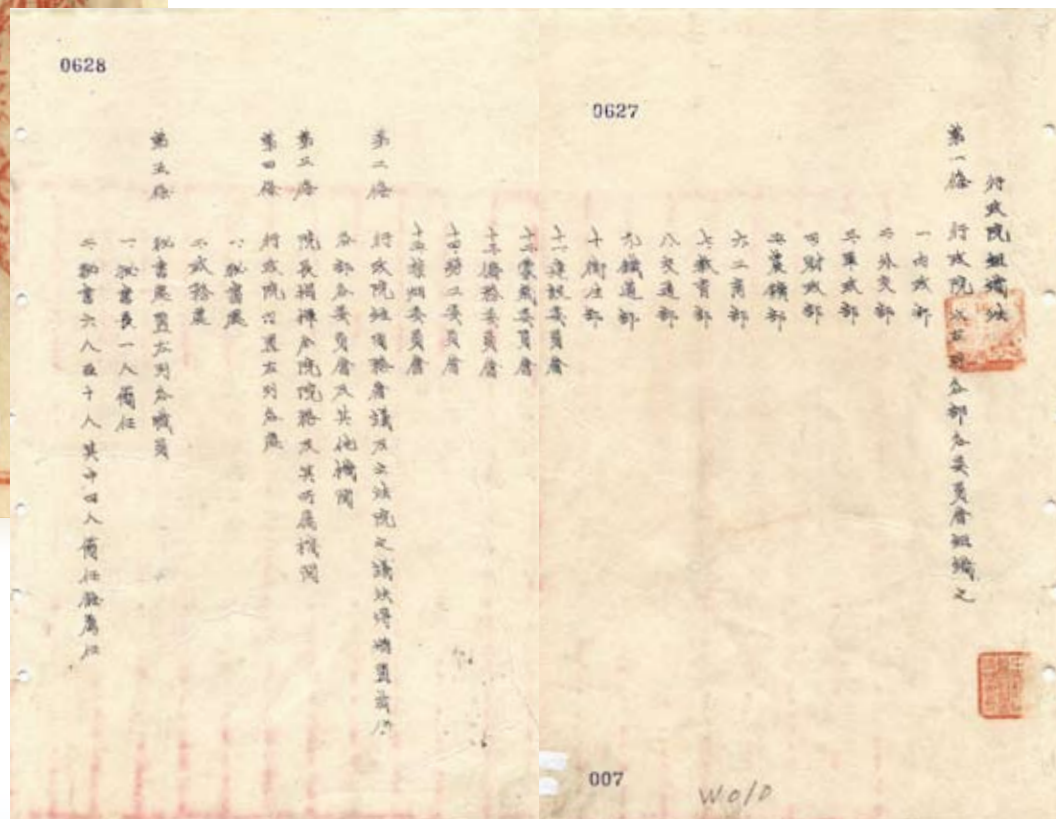 0627
行政院組織法
第一條 行政院以左列各部各委員會組織之
一內政部
二外交部
三軍政部
四財政部
五農礦部
六工商部
七教育部
八交通部
九鐵道部
十衛生部
十一建設委員會
十二蒙藏委員會
十三僑務委員會
十四勞工委員會
十五禁烟委員會
007
W010
0628
第二條 行政院經國務會議及立法院之議決得增置裁併
各部各委員會及其他機關
第三條 院長綜理全院院務及其所屬機關
第四條 行政院內置左列各處
一秘書處
二政務處
第五條 秘書處置左列各職員
一秘書長一人簡任
二秘書六人至十人其中四人簡任餘薦任